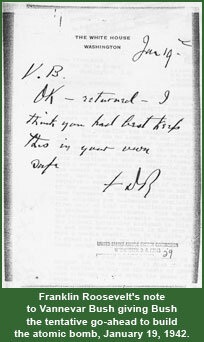 THE WHITE HOUSE
WASHINGTON
Jan 19 —
V. B.
OK — returned — I
think you had best keep
this in your own
safe
FDR
29
Franklin Roosevelt's note
to Vannevar Bush giving Bush
the tentative go-ahead to build
the atomic bomb, January 19, 1942.